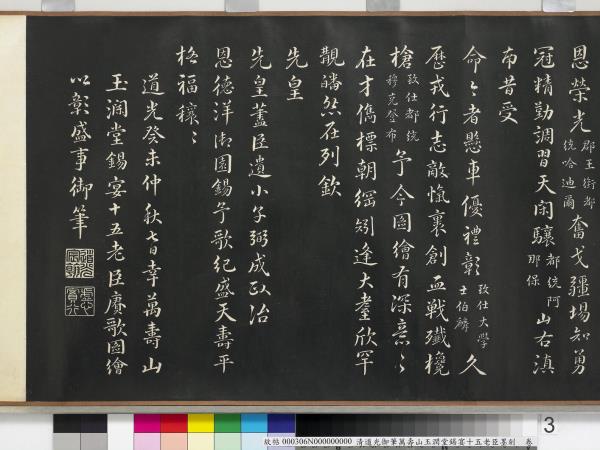 恩榮光郡王銜都統哈迪爾奮戈疆場知勇
冠精勤調習天閑驤都統阿那保山右滇
南昔受
命令者懸車優禮彰致仕大學士伯麟久
歷戎行志敵愾裹創血戰殲欃
槍致仕都統穆克登布予今圖繪有深意意
在才儁標朝綱矧逢大耋欣罕
覯皤然在列欽
先皇
先皇藎臣遺小子弼成政治
恩德洋御園錫予歌紀盛天壽平
格福穰穰
道光癸未仲秋七日幸萬壽山
玉瀾堂錫宴十五老臣賡歌圖繪
以彰盛事御筆
3
故帖 000306N000000000 清道光御筆萬壽山玉瀾堂錫宴十五老臣墨刻 卷